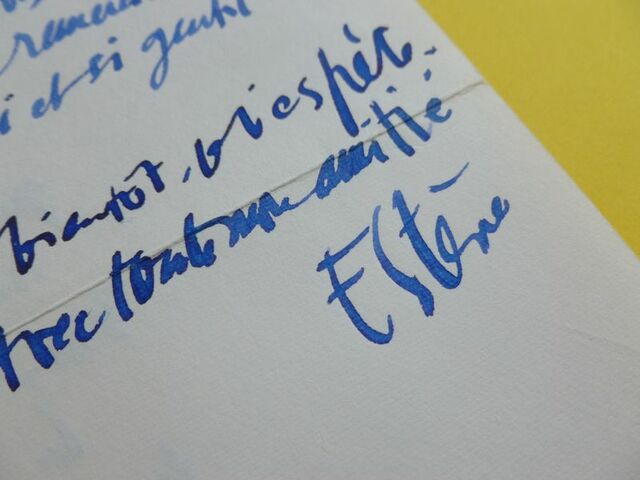 et si gentil
bientôt, j'espère.
Avec toute mon amitié
Estène